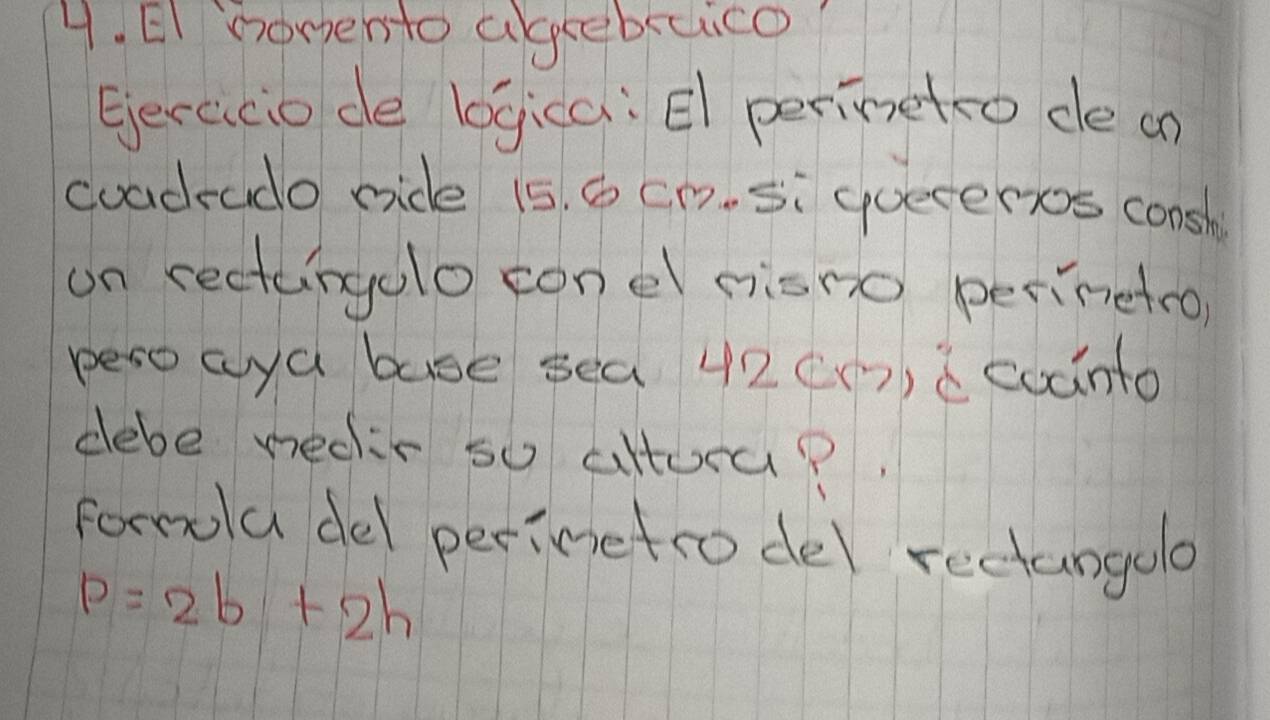 4. El momento algrebraico
Ejercicio de lógica: El perímetro de un
cuadrado mide 15.6 cm. si queremos constr
un rectángulo con el mismo perímetro,
pero cuya base sea 42 cm, ¿ cuánto
debe medir su altura?.
Formula del perímetro del rectangulo
P = 2b + 2h